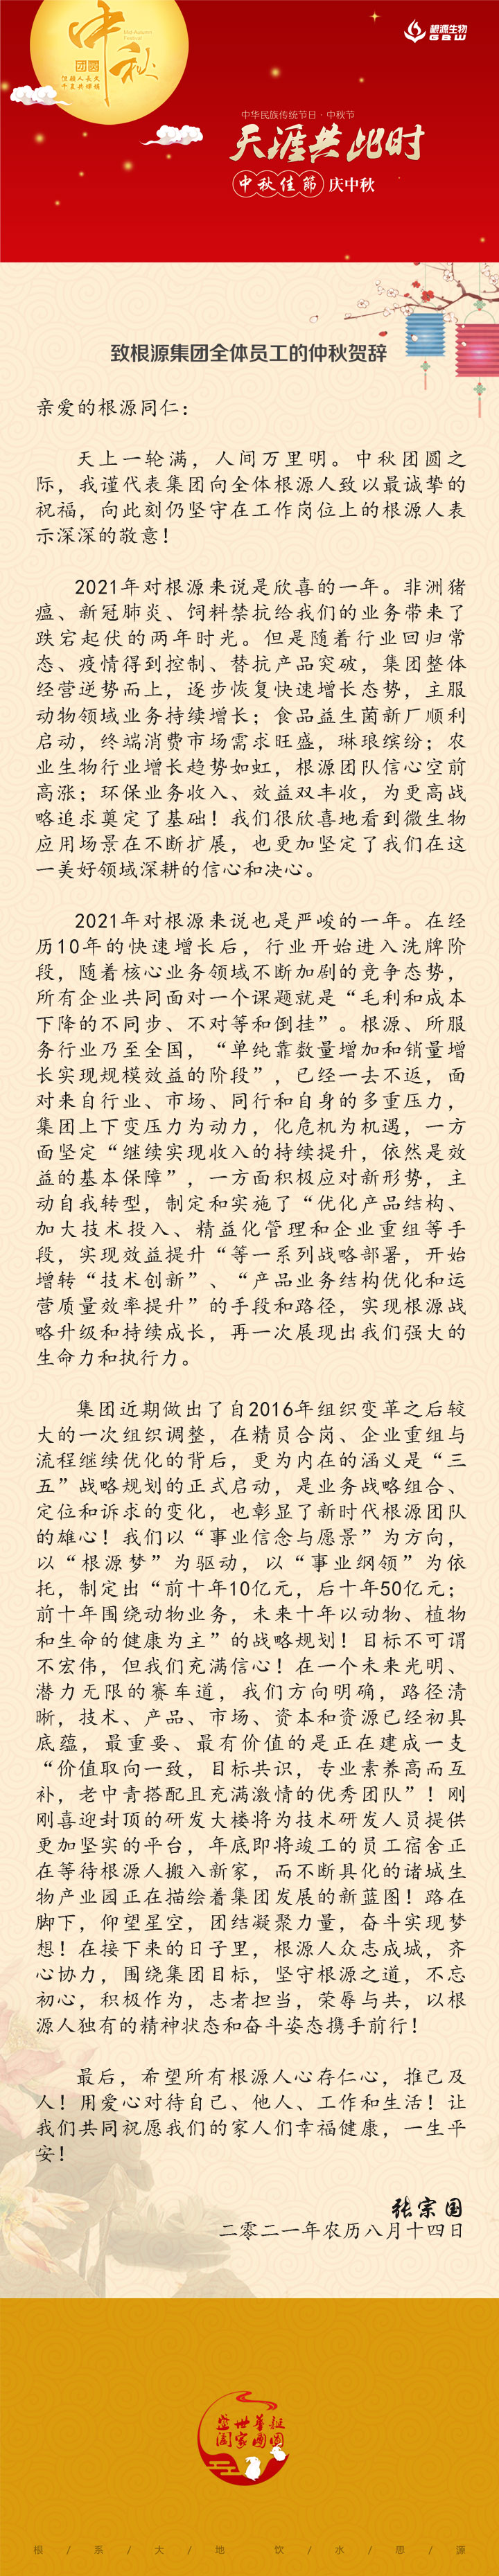 中秋
Mid-Autumn
Festival
团圆
但愿人长久
千里共婵娟
根源生物
GBW
中华民族传统节日·中秋节
天涯共此时
中秋佳節 庆中秋
致根源集团全体员工的仲秋贺辞
亲爱的根源同仁：
天上一轮满，人间万里明。中秋团圆之
际，我谨代表集团向全体根源人致以最诚挚的
祝福，向此刻仍坚守在工作岗位上的根源人表
示深深的敬意！
2021年对根源来说是欣喜的一年。非洲猪
瘟、新冠肺炎、饲料禁抗给我们的业务带来了
跌宕起伏的两年时光。但是随着行业回归常
态、疫情得到控制、替抗产品突破，集团整体
经营逆势而上，逐步恢复快速增长态势，主服
动物领域业务持续增长；食品益生菌新厂顺利
启动，终端消费市场需求旺盛，琳琅缤纷；农
业生物行业增长趋势如虹，根源团队信心空前
高涨；环保业务收入、效益双丰收，为更高战
略追求奠定了基础！我们很欣喜地看到微生物
应用场景在不断扩展，也更加坚定了我们在这
一美好领域深耕的信心和决心。
2021年对根源来说也是严峻的一年。在经
历10年的快速增长后，行业开始进入洗牌阶
段，随着核心业务领域不断加剧的竞争态势，
所有企业共同面对一个课题就是“毛利和成本
下降的不同步、不对等和倒挂”。根源、所服
务行业乃至全国，“单纯靠数量增加和销量增
长实现规模效益的阶段”，已经一去不返，面
对来自行业、市场、同行和自身的多重压力，
集团上下变压力为动力，化危机为机遇，一方
面坚定“继续实现收入的持续提升，依然是效
益的基本保障”，一方面积极应对新形势，主
动自我转型，制定和实施了“优化产品结构、
加大技术投入、精益化管理和企业重组等手
段，实现效益提升“等一系列战略部署，开始
增转“技术创新”、“产品业务结构优化和运
营质量效率提升”的手段和路径，实现根源战
略升级和持续成长，再一次展现出我们强大的
生命力和执行力。
集团近期做出了自2016年组织变革之后较
大的一次组织调整，在精员合岗、企业重组与
流程继续优化的背后，更为内在的涵义是“三
五”战略规划的正式启动，是业务战略组合、
定位和诉求的变化，也彰显了新时代根源团队
的雄心！我们以“事业信念与愿景”为方向，
以“根源梦”为驱动，以“事业纲领”为依
托，制定出“前十年10亿元，后十年50亿元；
前十年围绕动物业务，未来十年以动物、植物
和生命的健康为主”的战略规划！目标不可谓
不宏伟，但我们充满信心！在一个未来光明、
潜力无限的赛车道，我们方向明确，路径清
晰，技术、产品、市场、资本和资源已经初具
底蕴，最重要、最有价值的是正在建成一支
“价值取向一致，目标共识，专业素养高而互
补，老中青搭配且充满激情的优秀团队”！刚
刚喜迎封顶的研发大楼将为技术研发人员提供
更加坚实的平台，年底即将竣工的员工宿舍正
在等待根源人搬入新家，而不断具化的诸城生
物产业园正在描绘着集团发展的新蓝图！路在
脚下，仰望星空，团结凝聚力量，奋斗实现梦
想！在接下来的日子里，根源人众志成城，齐
心协力，围绕集团目标，坚守根源之道，不忘
初心，积极作为，志者担当，荣辱与共，以根
源人独有的精神状态和奋斗姿态携手前行！
最后，希望所有根源人心存仁心，推己及
人！用爱心对待自己、他人、工作和生活！让
我们共同祝愿我们的家人们幸福健康，一生平
安！
张宗国
二零二一年农历八月十四日
盛世華誕
闔家團圓
根 / 系 / 大 / 地 饮 / 水 / 思 / 源